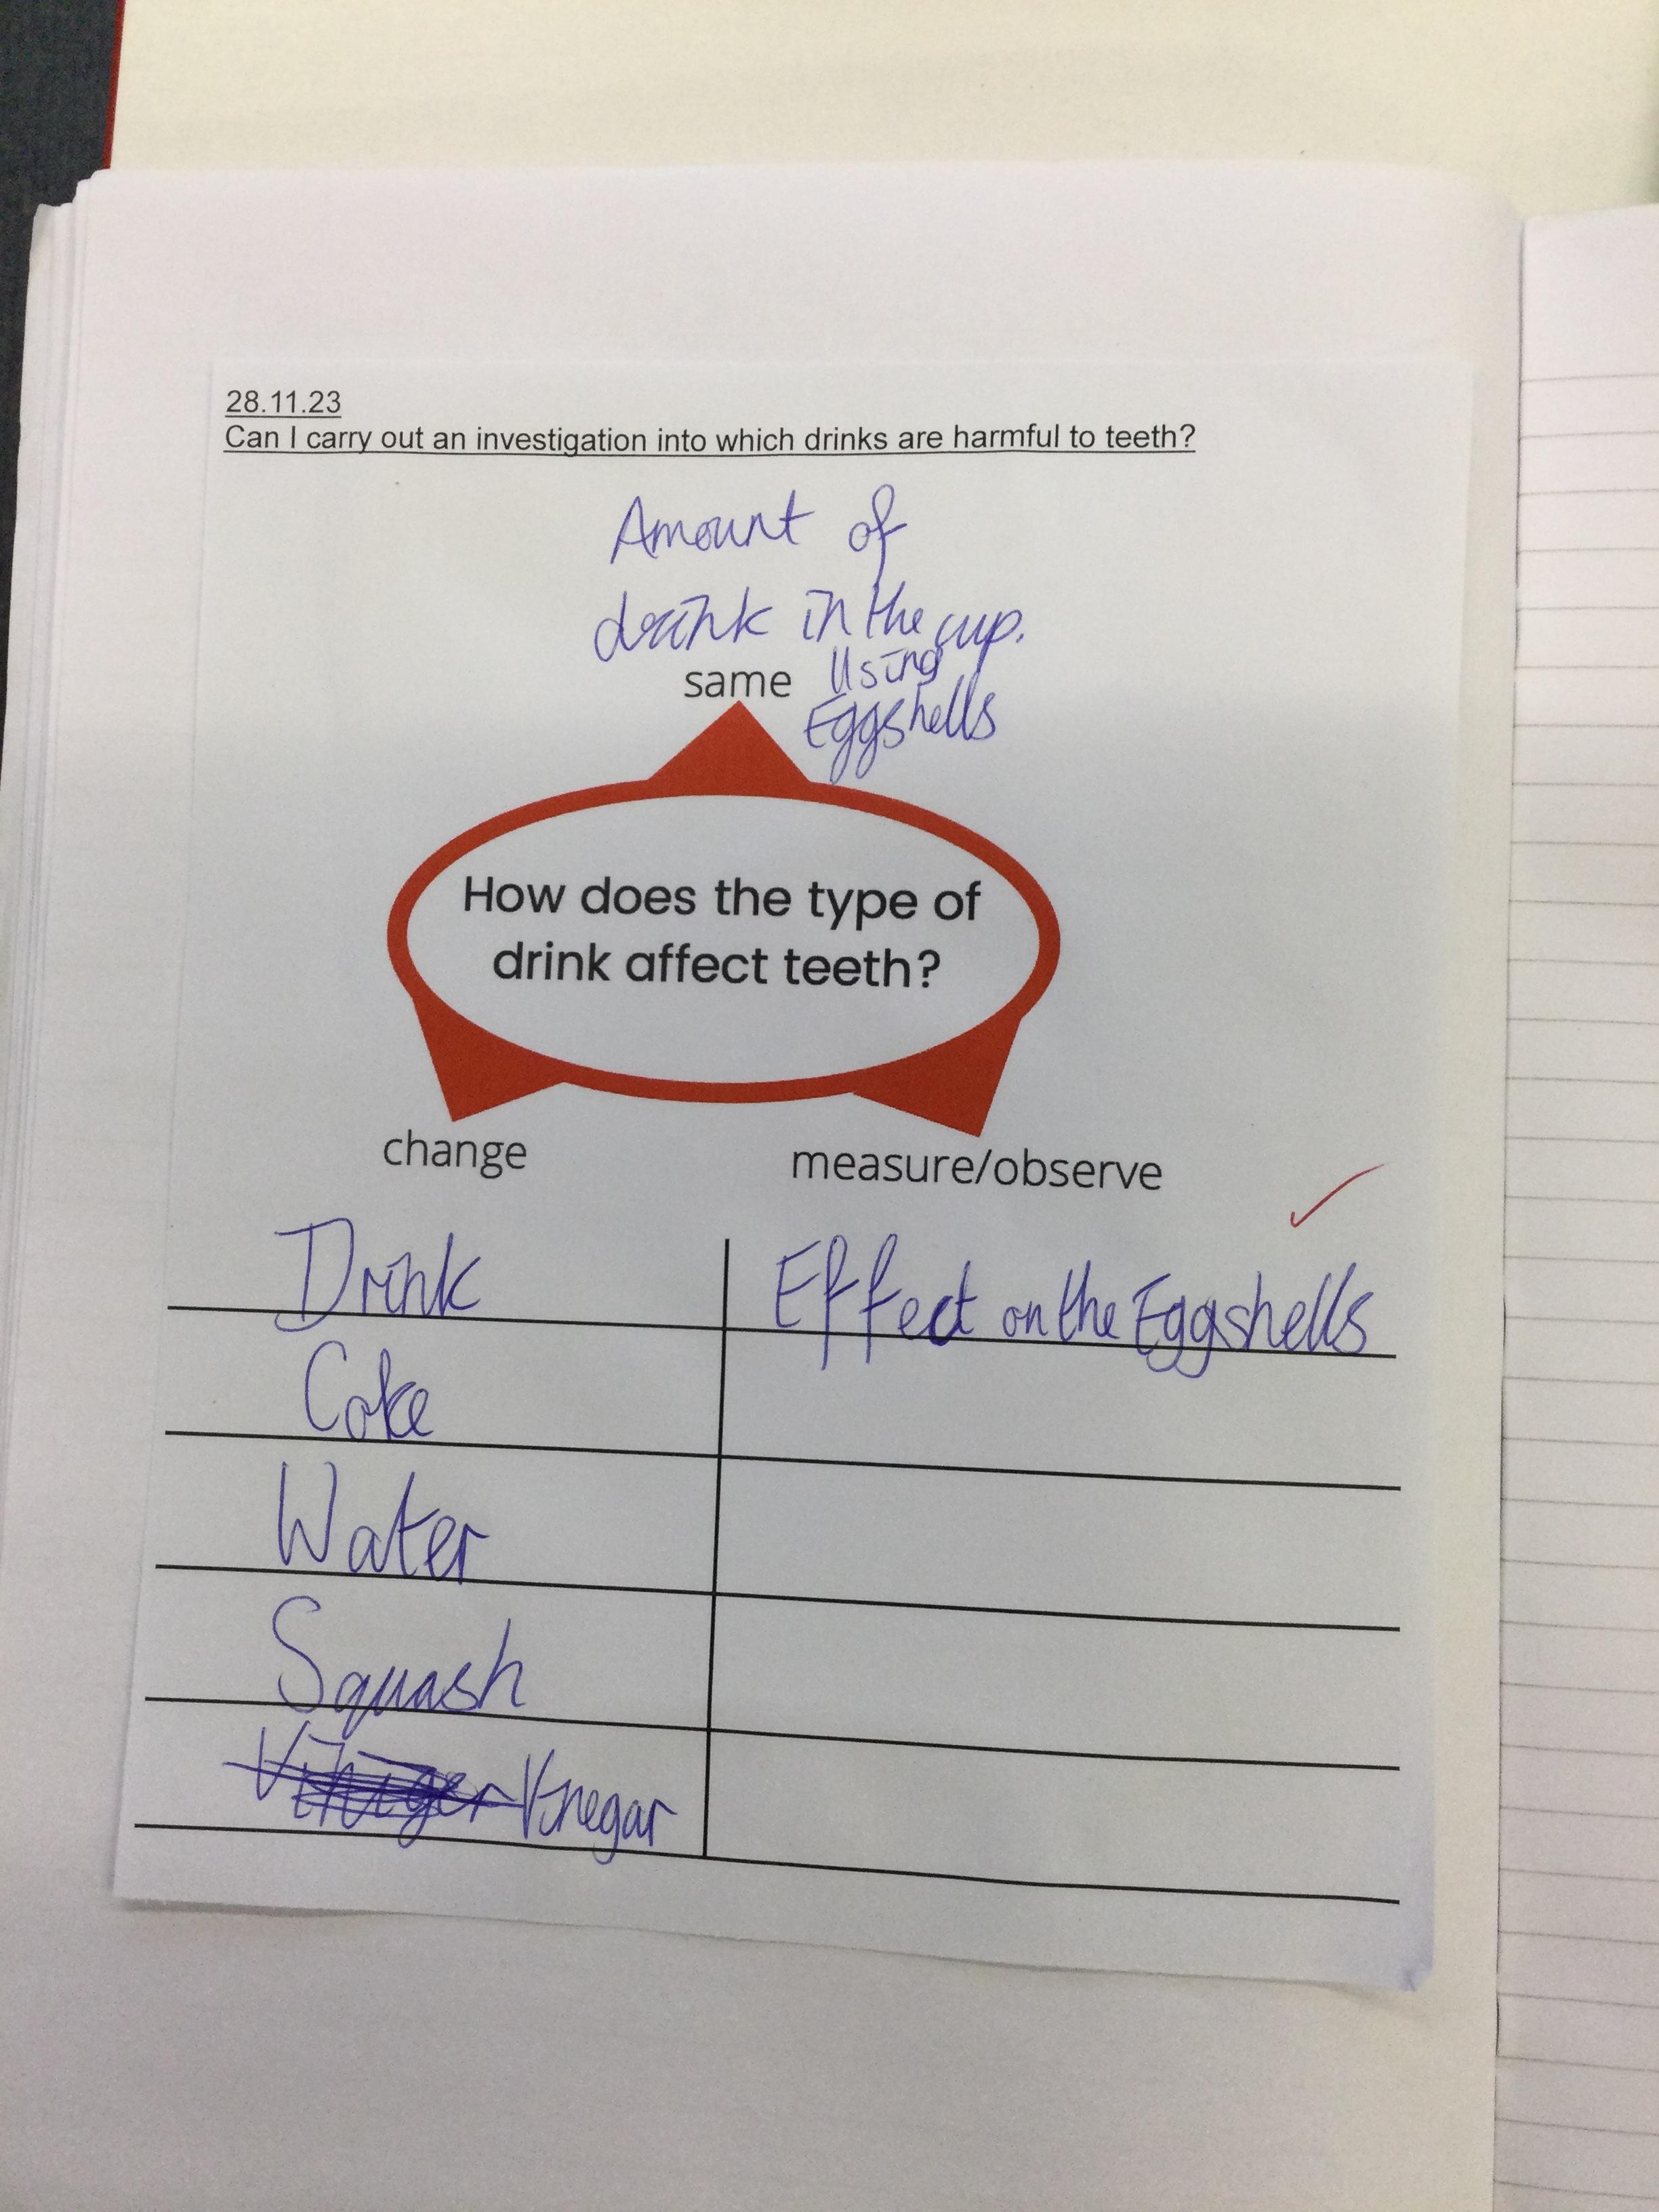 28.11.23
Can I carry out an investigation into which drinks are harmful to teeth?
Amount of
drink in the cup.
same Using
Eggshells
How does the type of
drink affect teeth?
change measure/observe
Drink Effect on the Eggshells
Coke
Water
Squash
Vinegar